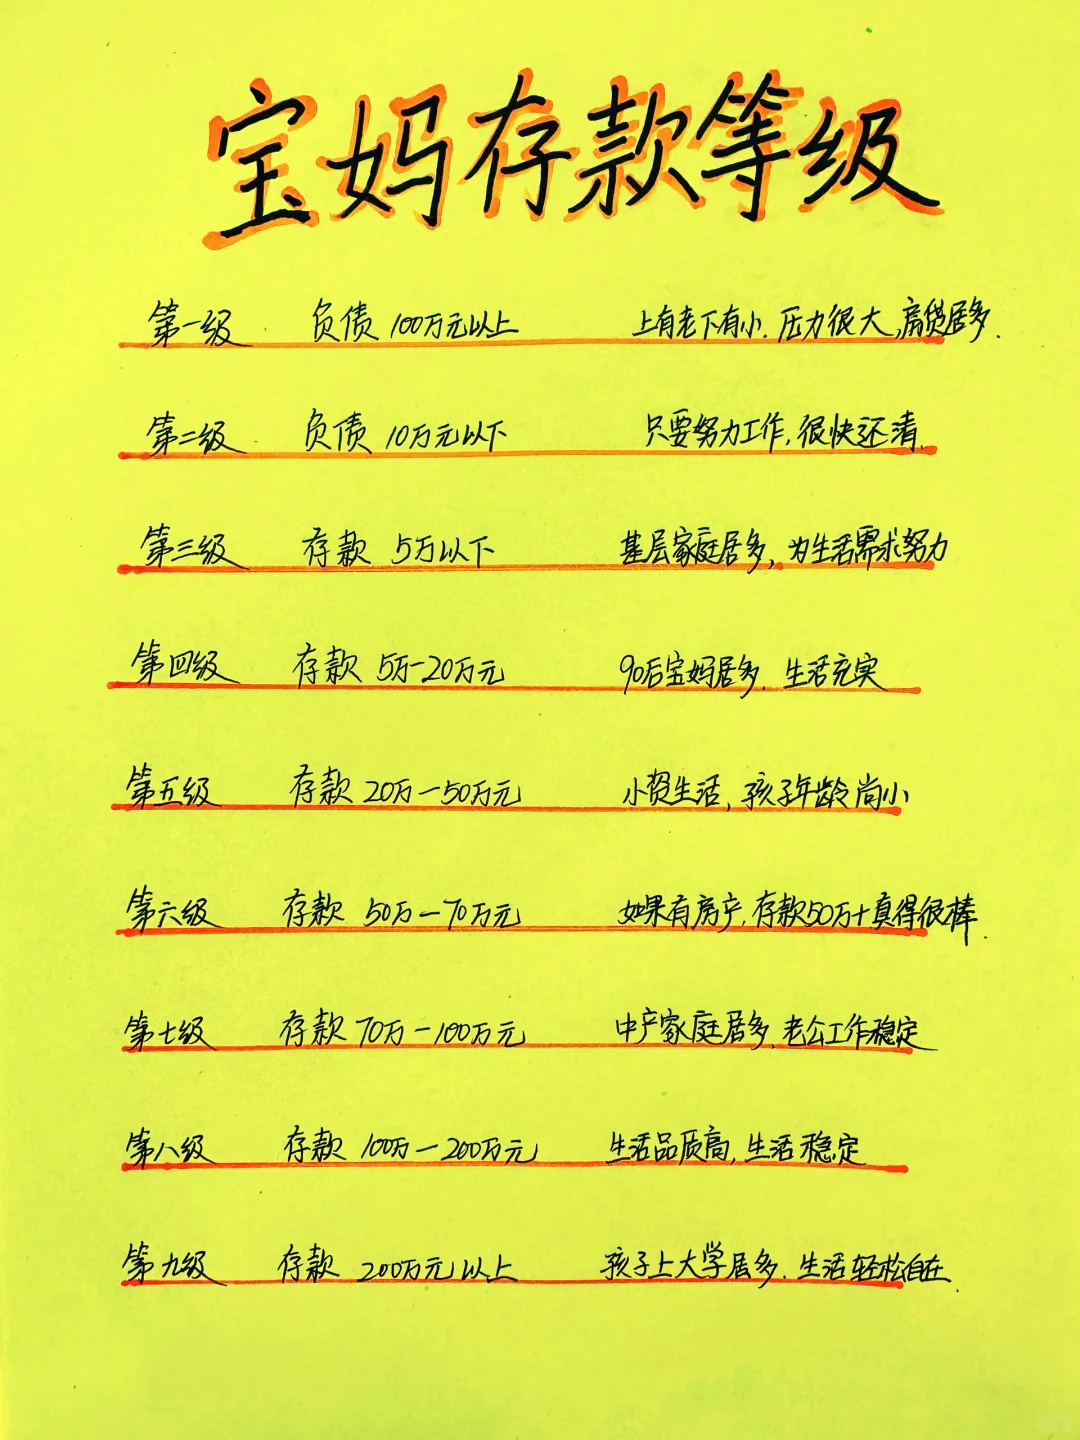 宝妈存款等级
第一级 负债100万元以上 上有老下有小.压力很大,房贷居多.
第二级 负债10万元以下 只要努力工作,很快还清.
第三级 存款 5万以下 基层家庭居多,为生活需求努力
第四级 存款 5万-20万元 90后宝妈居多.生活充实
第五级 存款 20万-50万元 小资生活,孩子年龄尚小
第六级 存款 50万-70万元 如果有房产,存款50万+真得很棒.
第七级 存款 70万-100万元 中产家庭居多.老公工作稳定
第八级 存款 100万-200万元 生活品质高,生活稳定
第九级 存款 200万元以上 孩子上大学居多.生活轻松自在.